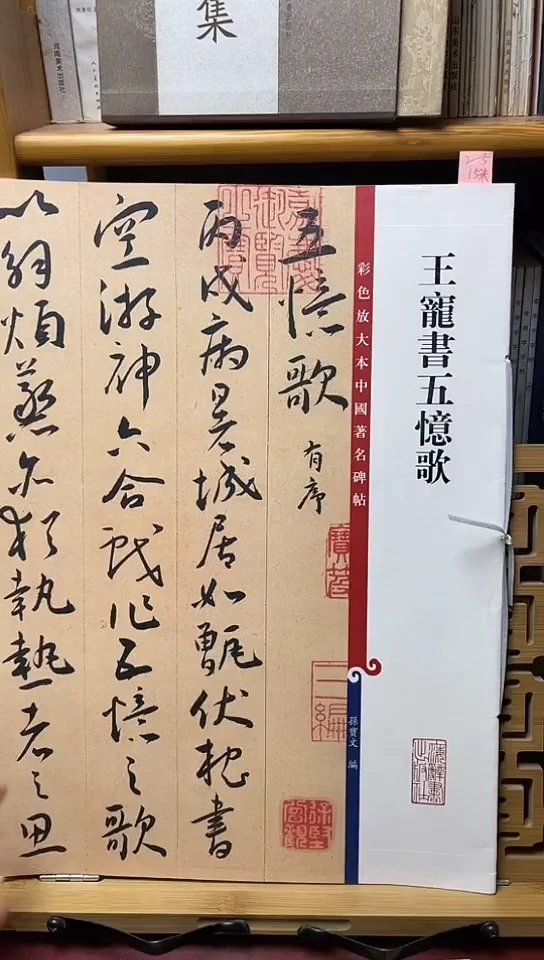 王寵書五憶歌
彩色放大本中國著名碑帖
孫寶文 編
五憶歌 有序
丙戌病暑城居如甑伏枕書
空游神六合戲作五憶之歌
以紓煩蒸亦猶執熱者之思
集
河南美术出版社
15米